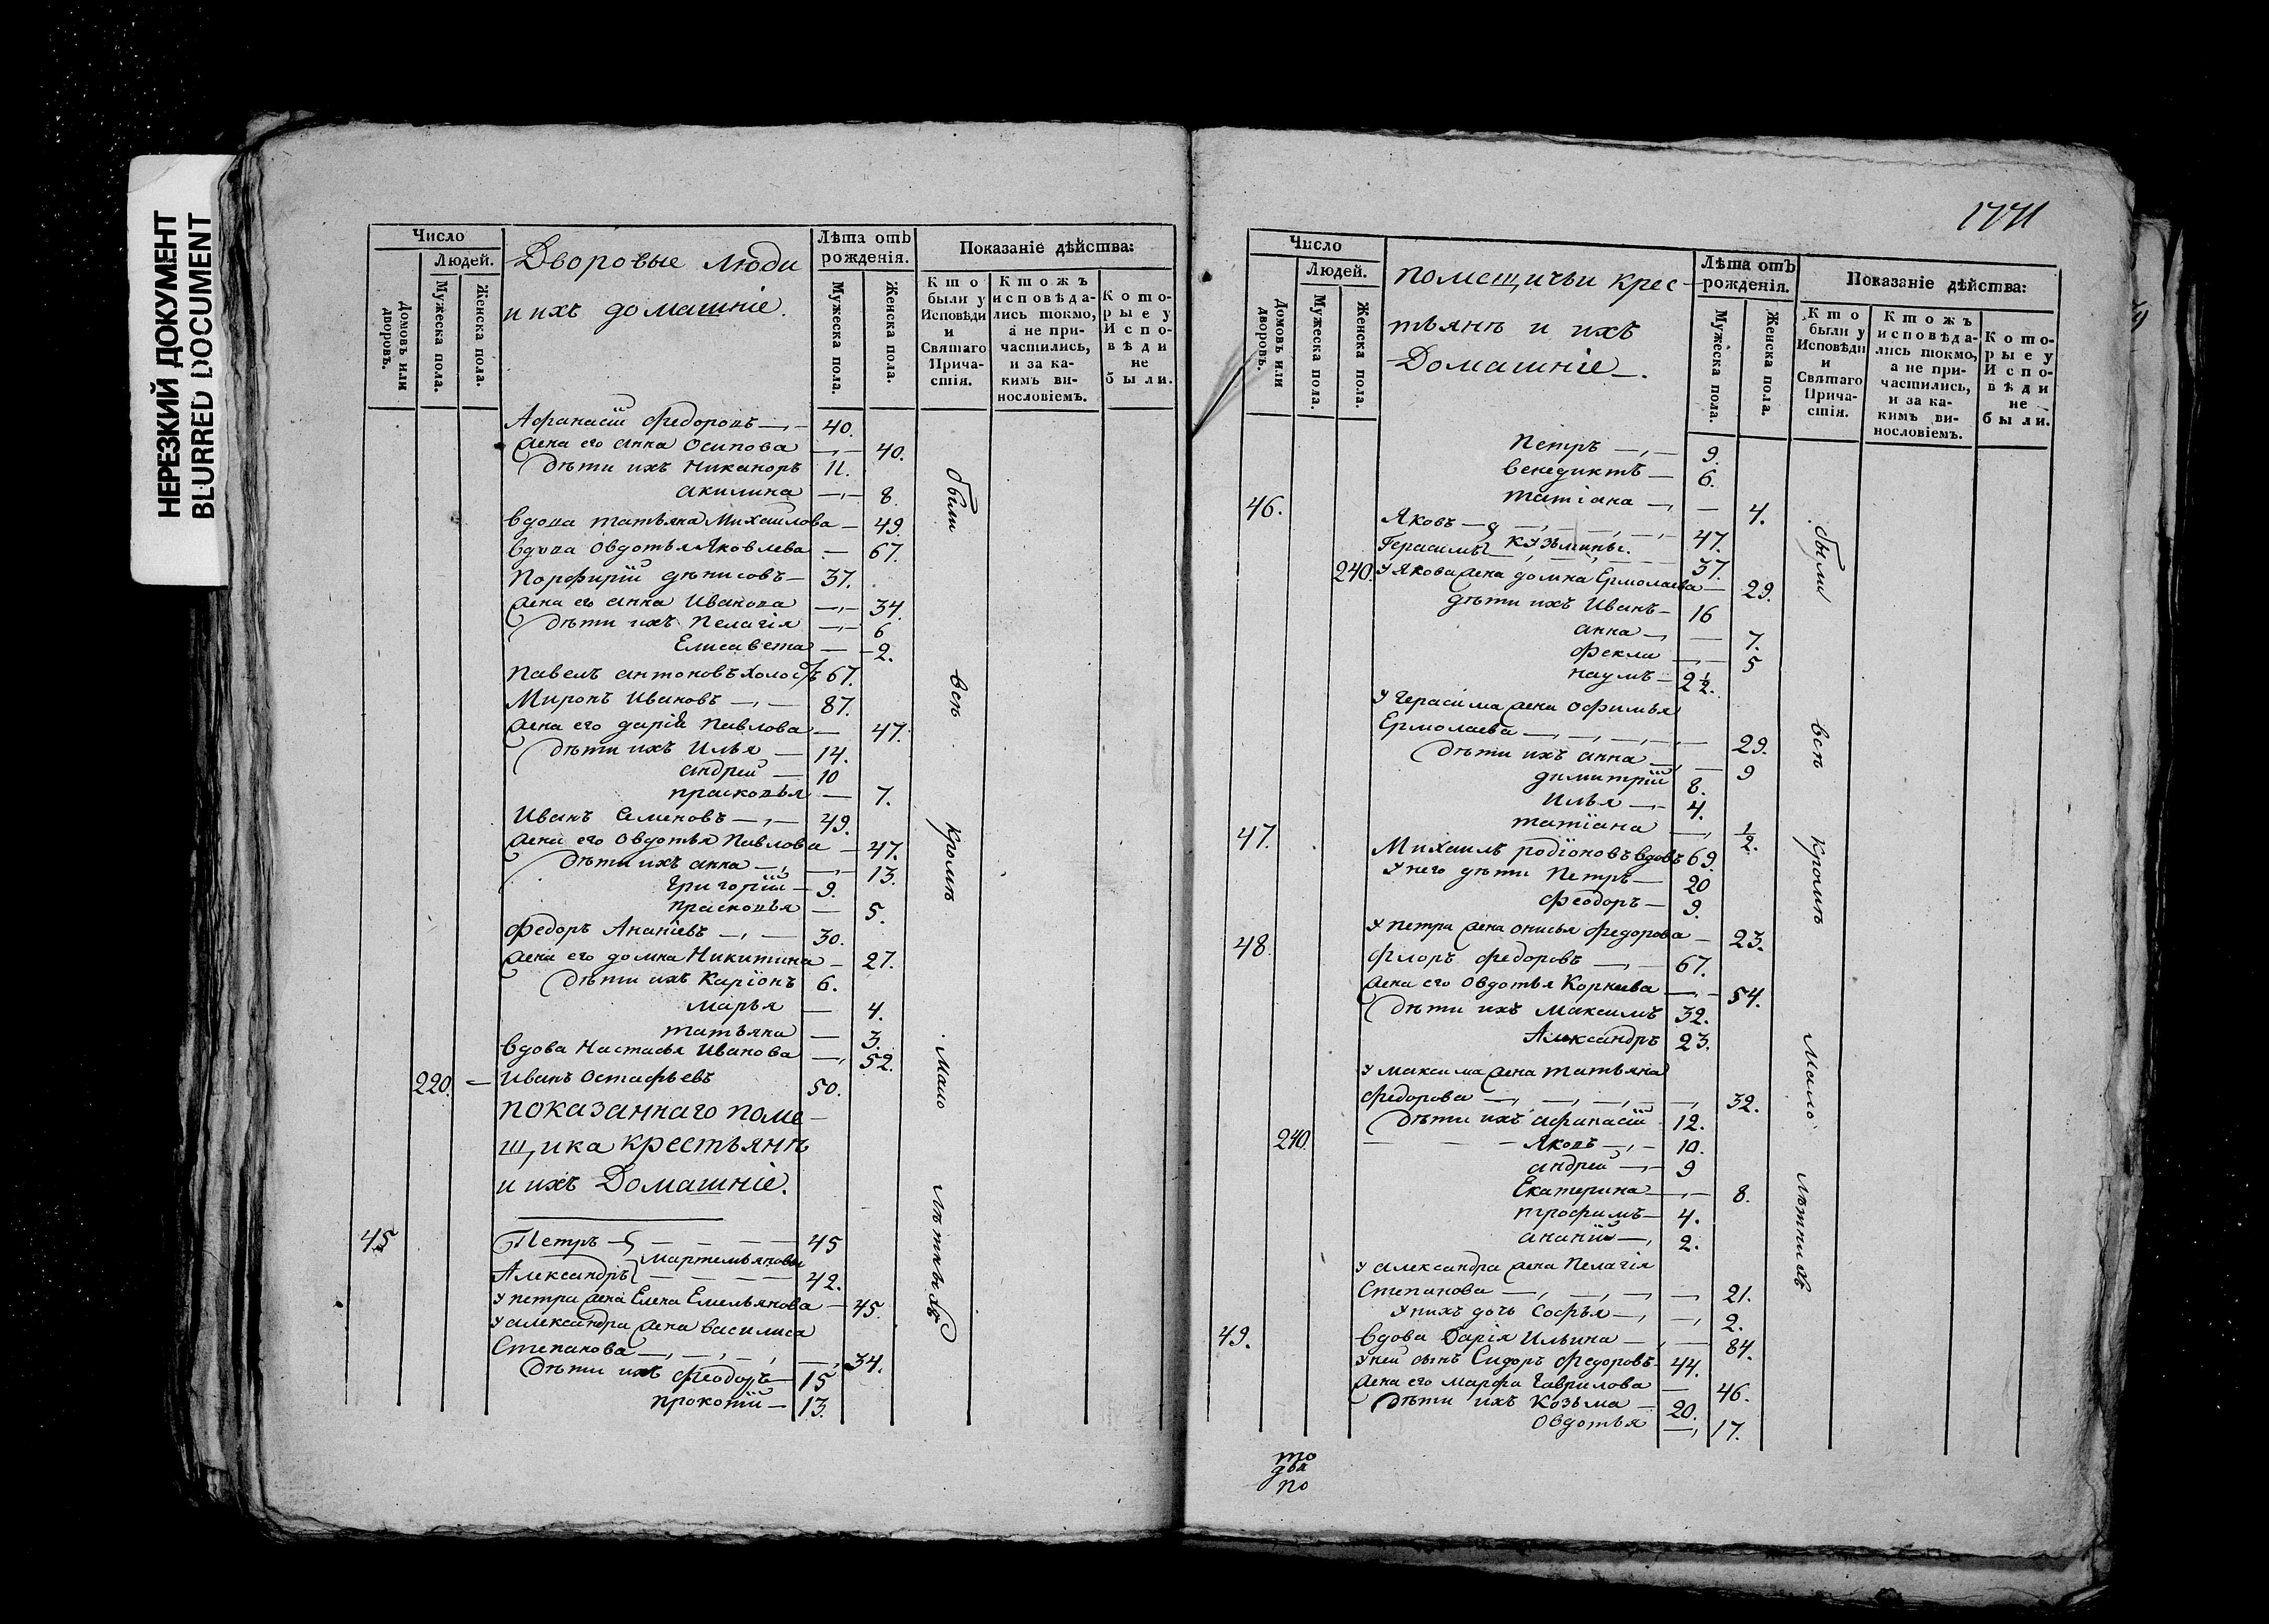 НЕРЕЗКИЙ ДОКУМЕНТ
BLURRED DOCUMENT
Число
Людей.
Домовъ или дворовъ.
Мужеска пола.
Женска пола.
Дворовые люди
и ихъ домашніе.
Лѣта отъ рожденія.
Мужеска пола.
Женска пола.
Показаніе дѣйства:
Кто были у Исповѣди и Святаго Причастія.
Ктожъ исповѣдались токмо, а не причастились, и за какимъ винословіемъ.
Которые у Исповѣди не были.
Афанасій Федоровъ 40.
Жена его Анна Осипова 40.
Дѣти ихъ Никаноръ 11.
Акилина 8.
Вдова Татьяна Михайлова 49.
Вдова Овдотья Яковлева 67.
Порфирій Денисовъ 37.
Жена его Анна Иванова 34.
Дѣти ихъ Пелагія 6
Елисавета 2.
Павелъ Антоновъ холостъ 67.
Миронъ Ивановъ 87.
Жена его Дарія Павлова 47.
Дѣти ихъ Илья 14.
Андрей 10
Прасковья 7.
Иванъ Семеновъ 49.
Жена его Овдотья Павлова 47.
Дѣти ихъ Анна 13.
Григорій 9.
Прасковья 5.
Федоръ Ананіевъ 30.
Жена его Домна Никитина 27.
Дѣти ихъ Каріонъ 6.
Марья 4.
Татьяна 3.
Вдова Настасья Иванова 52.
220. Иванъ Остафьевъ 50.
показаннаго поме-
щика крестьянѣ
и ихъ Домашніе.
45 Петръ 45
Мартемьяновы
Александръ 42.
У Петра жена Елена Емельянова 45.
У Александра жена Василиса
Степанова 34.
Дѣти ихъ Феодоръ 15
Прокопій 13.
были всѣ кромѣ мало лѣтныхъ
1771
Число
Людей.
Домовъ или дворовъ.
Мужеска пола.
Женска пола.
помещичьи крес-
тьянѣ и ихъ
Домашніе.
Лѣта отъ рожденія.
Мужеска пола.
Женска пола.
Показаніе дѣйства:
Кто были у Исповѣди и Святаго Причастія.
Ктожъ исповѣдались токмо, а не причастились, и за какимъ винословіемъ.
Которые у Исповѣди не были.
Петръ 9.
Венедиктъ 6.
Татіана 4.
46. Яковъ 47.
Кузьмины.
Герасимъ 37.
240. У Якова жена Домна Ермолаева 29.
Дѣти ихъ Иванъ 16
Анна 7.
Фекла 5
Наумъ 2 1/2.
У Герасима жена Офимья
Ермолаева 29.
Дѣти ихъ Анна 9
Димитрій 8.
Илья 4.
Татіана 1/2.
47. Михаилъ Родіоновъ вдовъ 69.
У него дѣти Петръ 20
Феодоръ 9.
У Петра жена Онисья Федорова 23.
48. Флоръ Федоровъ 67.
Жена его Овдотья Корнеева 54.
Дѣти ихъ Максимъ 32.
Александръ 23.
У Максима жена Татьяна
Федорова 32.
Дѣти ихъ Афанасій 12.
240. Яковъ 10.
Андрей 9
Екатерина 8.
Трофимъ 4.
Ананій 2.
У Александра жена Пелагія
Степанова 21.
У нихъ дочь Софья 2.
49. Вдова Дарія Ильина 84.
У ней сынъ Сидоръ Федоровъ 44.
Жена его Марфа Гаврилова 46.
Дѣти ихъ Козьма 20.
Овдотья 17.
были всѣ кромѣ мало лѣтнихъ
по